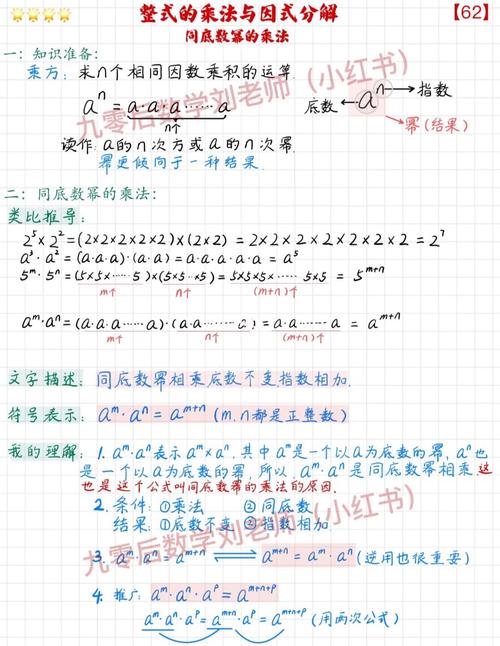 整式的乘法与因式分解
【62】
同底数幂的乘法
一：知识准备：
乘方：求n个相同因数乘积的运算.
aⁿ = a·a·a……a
n个
底数 ← aⁿ → 指数
幂(结果)
读作：a的n次方或a的n次幂.
幂更倾向于一种结果.
九零后数学刘老师（小红书）
二：同底数幂的乘法：
类比推导：
2⁵×2² = (2×2×2×2×2)×(2×2) = 2×2×2×2×2×2×2 = 2⁷
a³·a² = (a·a·a)·(a·a) = a·a·a·a·a = a⁵
5ᵐ·5ⁿ = (5×5×……5)×(5×5…×5) = 5×5×5×…… 5×5 = 5ᵐ⁺ⁿ
m个 n个 (m+n)个
aᵐ·aⁿ = (a·a·a……a)·(a·a……a) = a·a……a = aᵐ⁺ⁿ
m个 n个 (m+n)个
文字描述：同底数幂相乘底数不变指数相加.
符号表示：aᵐ·aⁿ = aᵐ⁺ⁿ (m,n都是正整数)
我的理解：1. aᵐ·aⁿ表示aᵐ×aⁿ,其中aᵐ是一个以a为底数的幂,aⁿ也
是一个以a为底数的幂,所以,aᵐ·aⁿ是同底数幂相乘.这
也是这个公式叫同底数幂的乘法的原因.
2. 条件：①乘法 ②同底数
结果：①底数不变 ②指数相加
九零后数学刘老师（小红书）
3. aᵐ·aⁿ = aᵐ⁺ⁿ ⇌ aᵐ⁺ⁿ = aᵐ·aⁿ (逆用也很重要)
4. 推广：aᵐ·aⁿ·aᵖ = aᵐ⁺ⁿ⁺ᵖ
aᵐ·aⁿ·aᵖ = aᵐ⁺ⁿ·aᵖ = aᵐ⁺ⁿ⁺ᵖ (用两次公式)